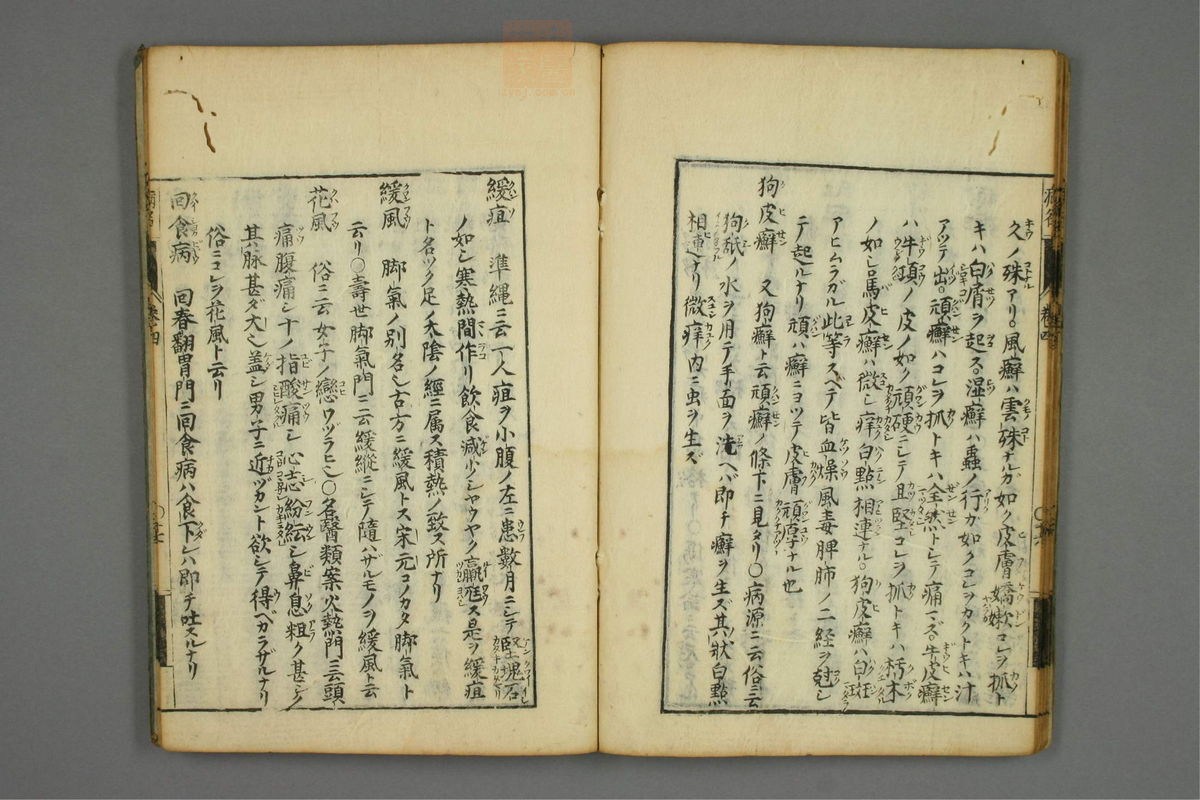 久ノ殊アリ。風癬ハ雲殊ナルガ如ク皮膚嬌嫰コレヲ抓ト
キハ白屑ヲ起ス。湿癬ハ蟲ノ行ガ如クコレヲカクトキハ汁
アツテ出。頑癬ハコレヲ抓トキハ全然トシテ痛マズ。牛皮癬
ハ牛頂ノ皮ノ如ク頑硬ニシテ且堅コレヲ抓トキハ朽木
ノ如シ馬皮癬ハ微シ痒白點相連ナル。狗皮癬ハ白
アヒムラガル此等スベテ皆血燥風毒脾肺ノ二経ヲ尅シ
テ起ルナリ頑癬ニヨツテ皮膚頑厚ナル也
狗皮癬 又狗癬ト云頑癬ノ條下ニ見タリ〇病源ニ云俗ニ云
狗舐ノ水ヲ用テ手面ヲ洗ヘバ即チ癬ヲ生ズ其状白點
相連ナリ微痒内ニ虫ヲ生ズ
緩疽 準縄ニ云一人疽ヲ小腹ノ左ニ患數月ニシテ堅塊石
ノ如シ寒熱間作リ飲食減少シヤウヤク羸尫ス是ヲ緩疽
ト名ツク足ノ太陰ノ經ニ属ス積熱ノ致ス所ナリ
緩風 脚氣ノ別名シ古方ニ緩風トス宋元コノカタ脚氣ト
云リ〇壽世脚氣門ニ云緩縱ニシテ隨ハザルモノヲ緩風ト云
花風 俗ニ云女子ノ戀ワヅラヒシ〇名醫類案火熱門ニ云頭
痛腹痛シ十ノ指酸痛シ心志紛紜シ鼻息粗ク甚シク
其脉甚ダ大シ盖シ男子ニ近ヅカント欲シテ得ベカラザルナリ
俗ニコレヲ花風ト云リ
回食病 回春翻胃門ニ回食病ハ食下レハ即チ吐スルナリ